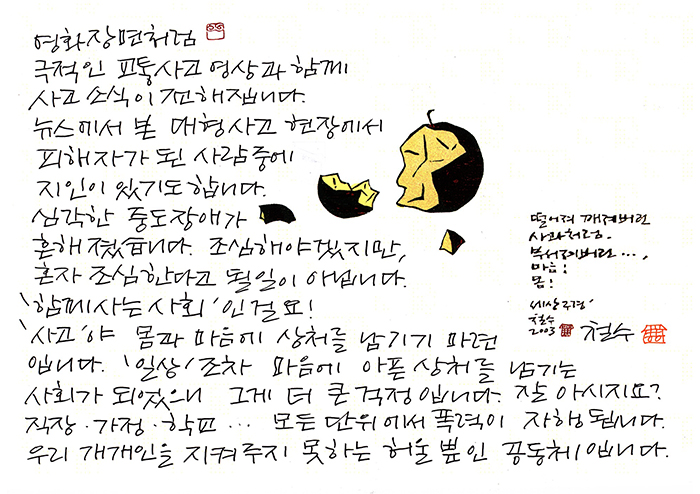 영화장면처럼
극적인 교통사고 영상과 함께
사고 소식이 전해집니다.
뉴스에서 본 대형사고 현장에서
피해자가 된 사람중에
지인이 있기도합니다.
심각한 중도장애가
흔해졌습니다. 조심해야겠지만,
혼자 조심한다고 될일이 아닙니다.
'함께사는 사회'인걸요!
'사고'야 몸과 마음에 상처를 남기기 마련
입니다. '일상'조차 마음에 아픈 상처를 남기는
사회가 되었으니 그게 더 큰 걱정입니다. 잘 아시지요?
직장·가정·학교… 모든 단위에서 폭력이 자행됩니다.
우리 개개인을 지켜주지 못하는 허울뿐인 공동체입니다.
떨어져 깨져버린
사과처럼.
부서져버린…,
마음!
몸!
세상풍경'
철수
2003 철수